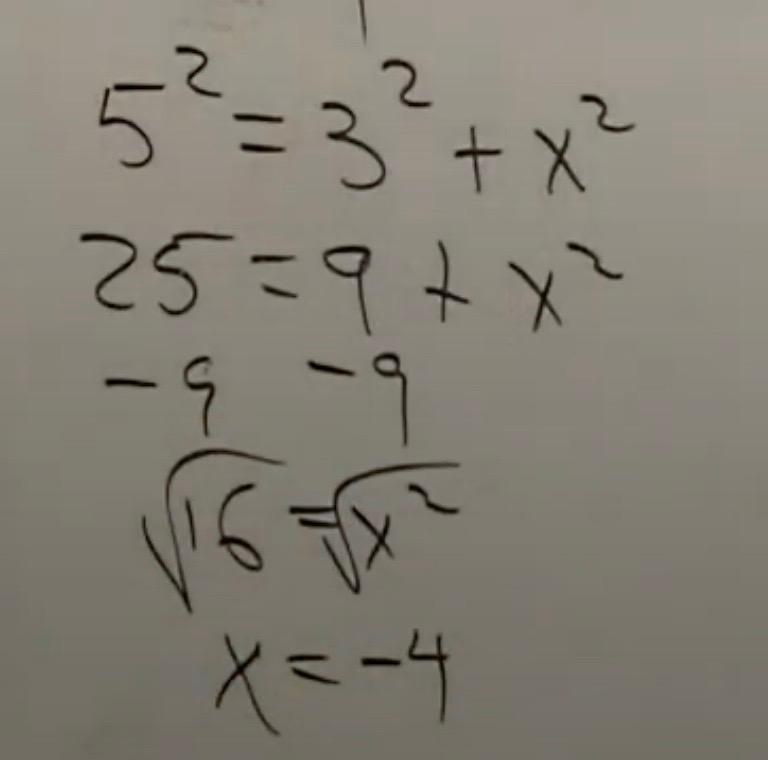 5² = 3² + x²
25 = 9 + x²
-9 -9
√16 = √x²
x = -4